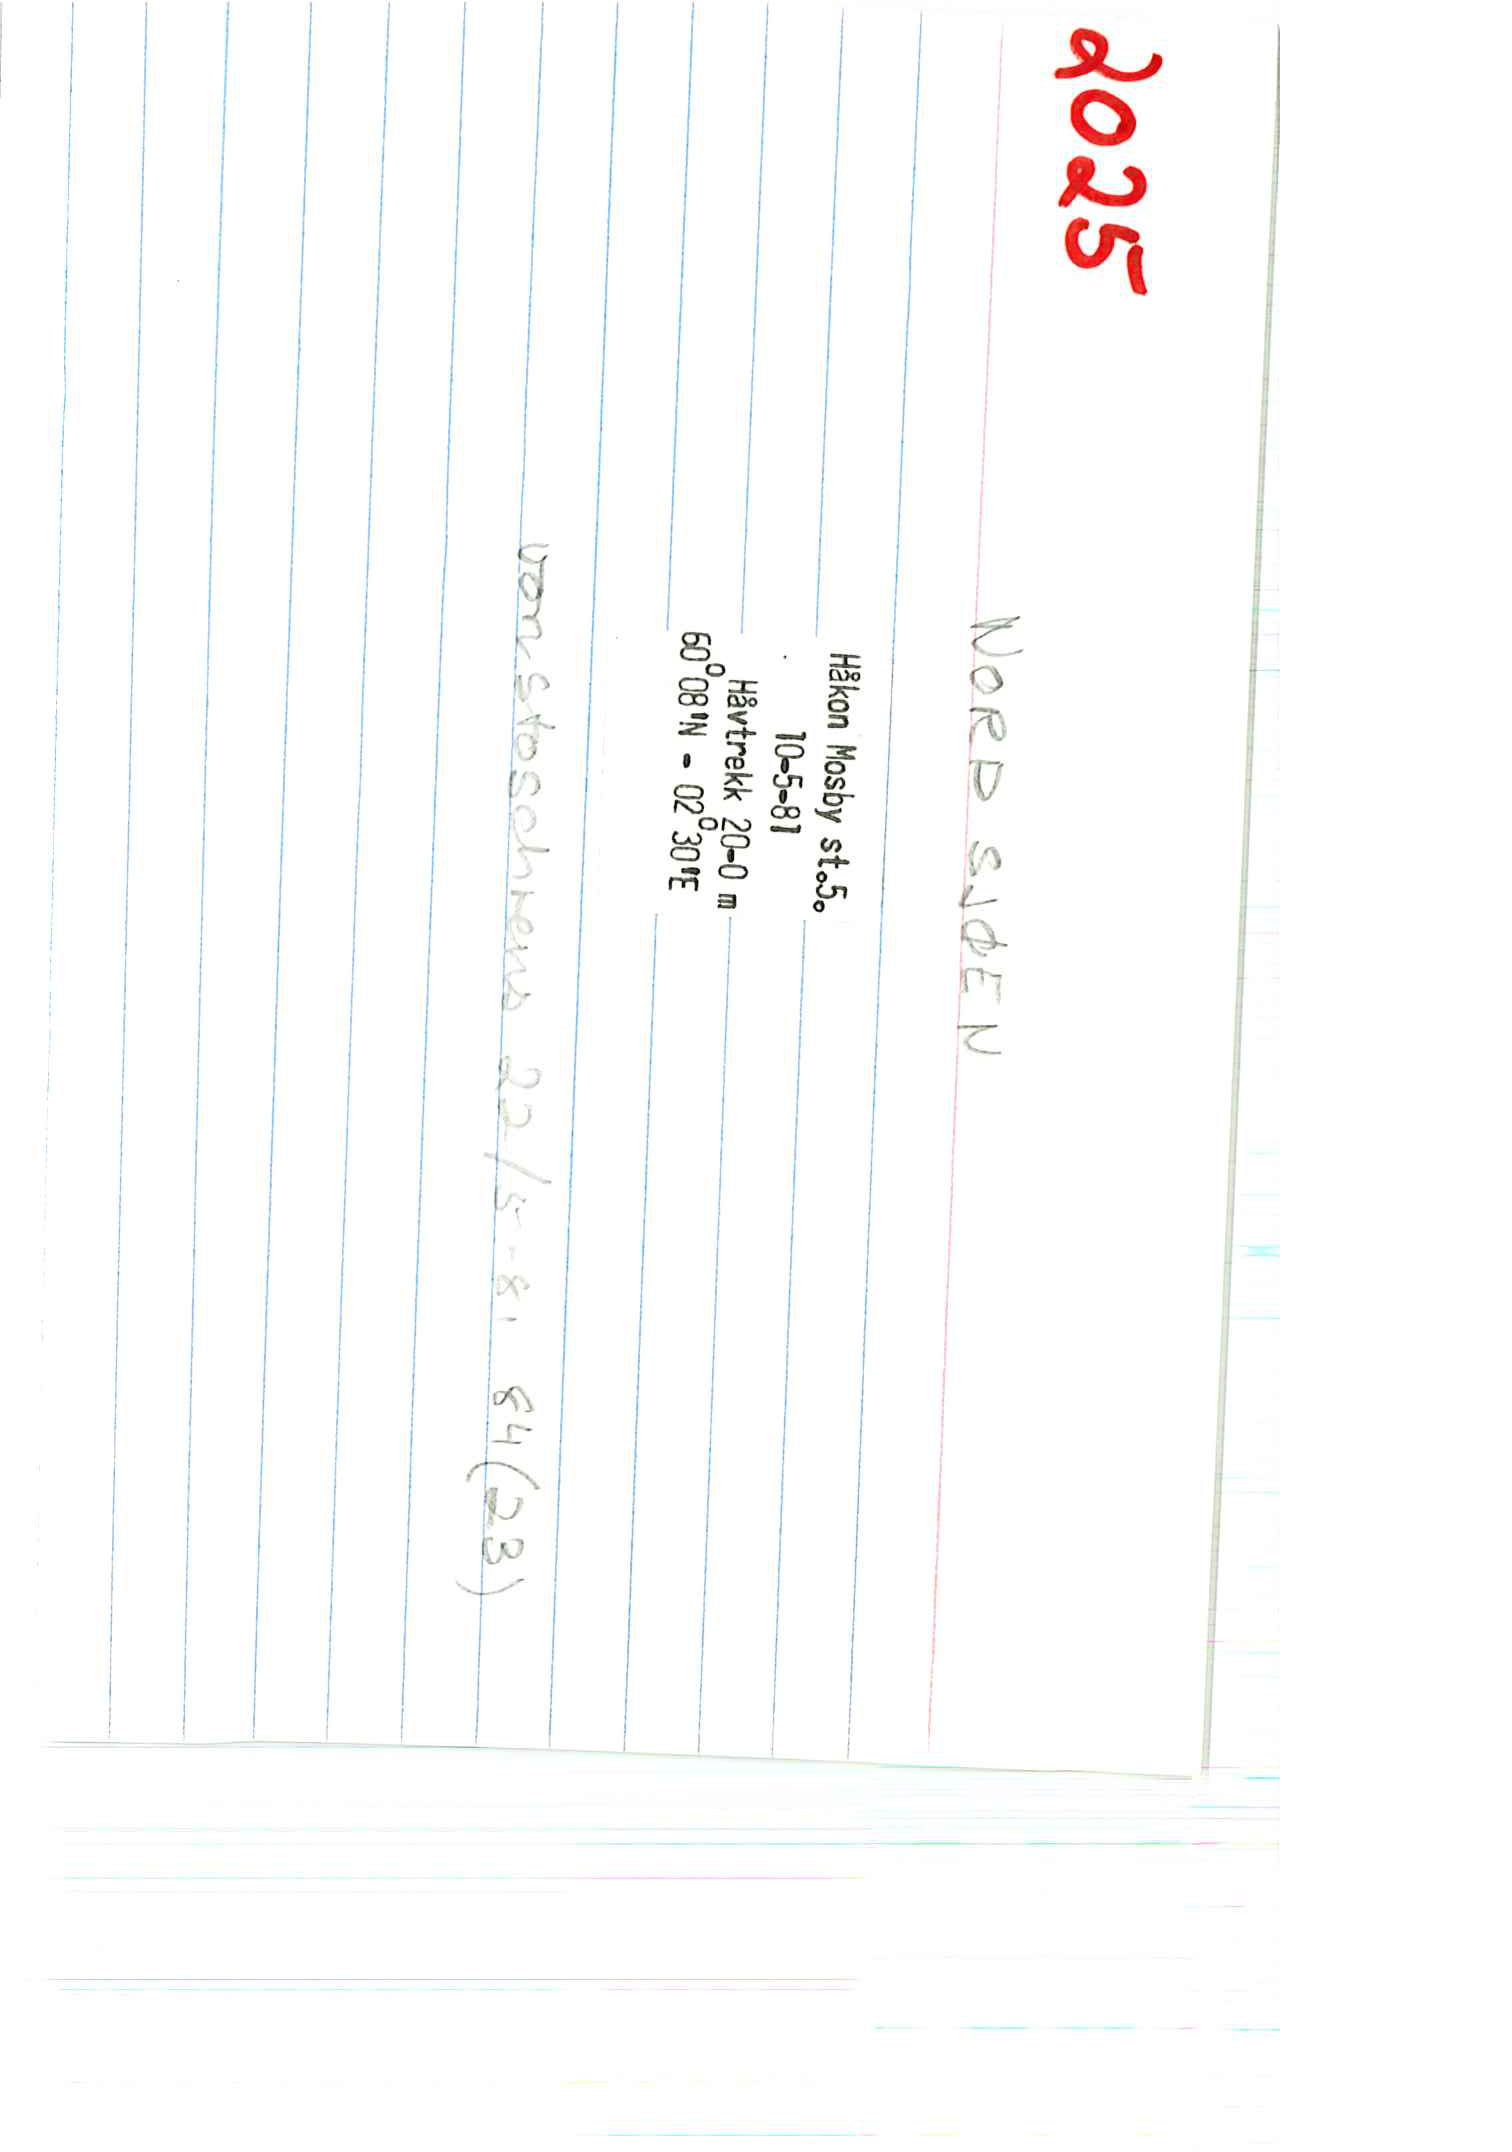 2025
NORD SJØEN
Håkon Mosby st.5.
10-5-81
Håvtrekk 20-0 m
60°08'N - 02°30'E
von stoschrens 22/5-81 84(23)